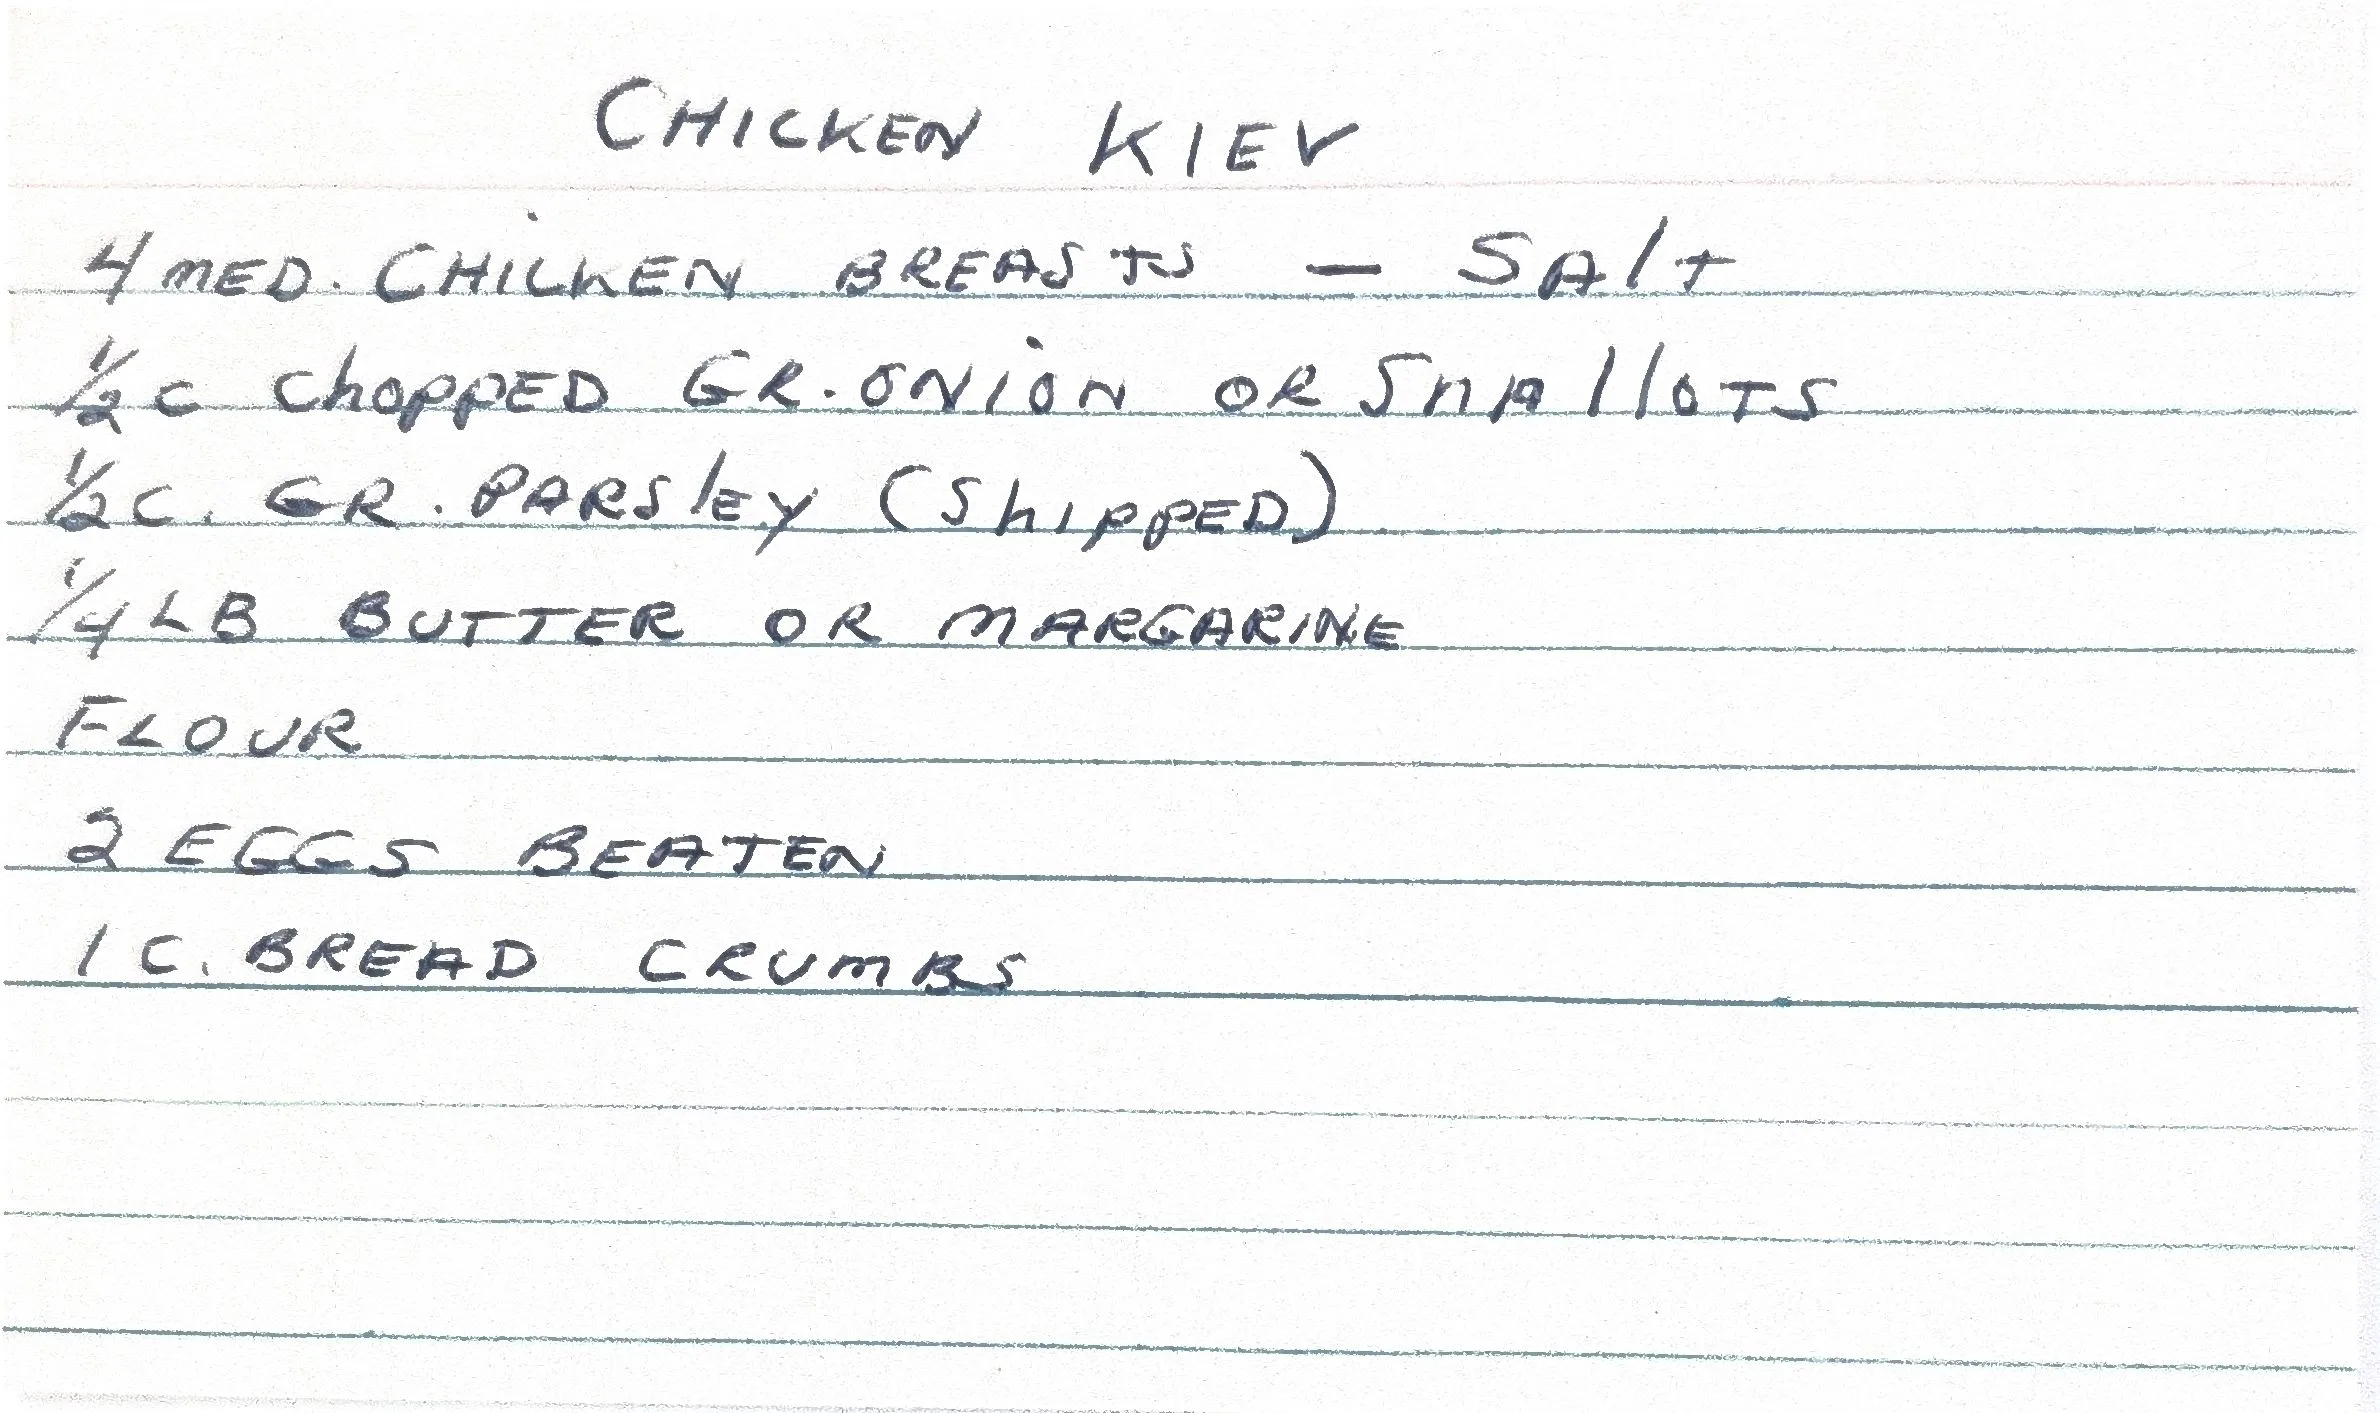 CHICKEN KIEV
4 MED. CHICKEN BREASTS — SAlT
1/2 C ChOPPED GR. ONION OR ShAllOTS
1/2 C. GR. PARSlEY (ShIPPED)
1/4 LB BUTTER OR MARGARINE
FLOUR
2 EGGS BEATEN
1 C. BREAD CRUMBS